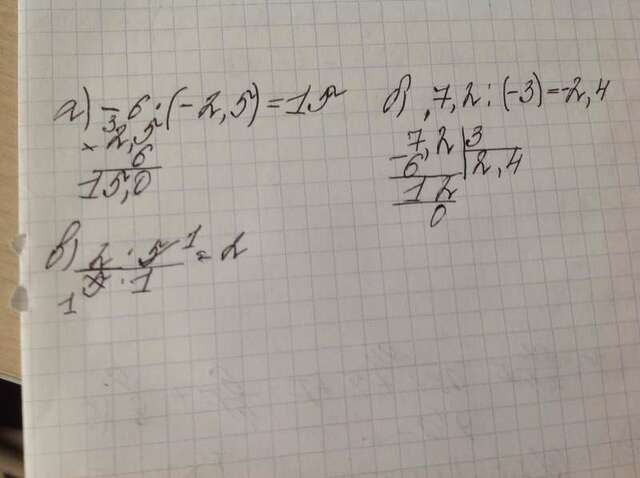 а) -6 · (-2,5) = 15
3
× 2,5
6
15,0
б) 7,2 : (-3) = -2,4
- 7,2 | 3
6 | 2,4
12
0
в) 2 · 5 1 = 2
1 5 · 1